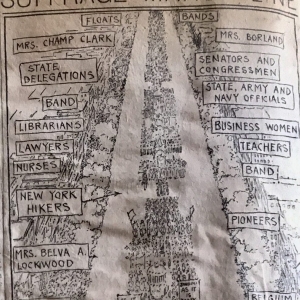 SUFFRAGE MARCH LINE
FLOATS
BANDS
MRS. CHAMP CLARK
MRS. BORLAND
STATE
DELEGATIONS
SENATORS AND
CONGRESSMEN
BAND
STATE, ARMY AND
NAVY OFFICIALS
LIBRARIANS
BUSINESS WOMEN
LAWYERS
TEACHERS
NURSES
BAND
NEW YORK
HIKERS
PIONEERS
MRS. BELVA A.
LOCKWOOD
BELGIUM